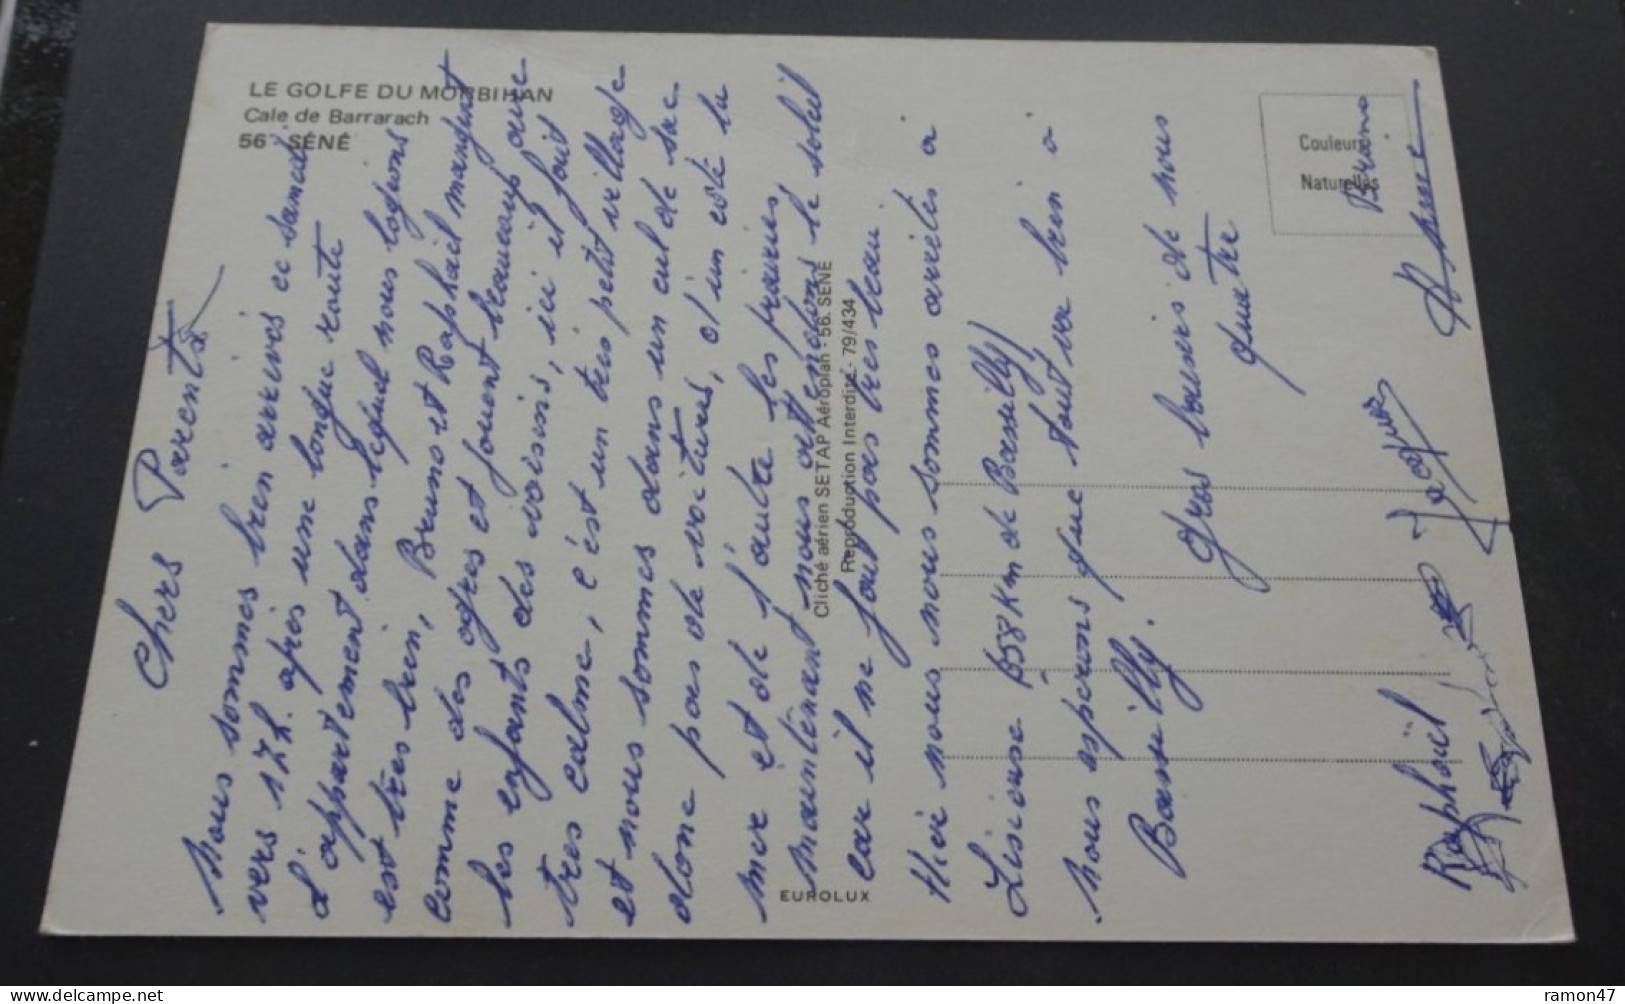 LE GOLFE DU MORBIHAN
Cale de Barrarach
56 - SÉNÉ
Chers Parents
Nous sommes bien arrivés ce samedi
vers 17h. après une longue route
l'appartement dans lequel nous logeons
est très bien, Bruno et Raphaël mangent
comme des ogres et jouent beaucoup avec
les enfants des voisins, ici il fait
très calme, c'est un très petit village
et nous sommes dans un cul de sac
donc pas de voitures, d'un côté la
mer et de l'autre les prairies
maintenant nous attendons le soleil
car il ne fait pas très beau
Hier nous nous sommes arrêtés à
Lisieuse (58 Km de Bamilly)
nous espérons que tout va bien à
Bamilly.
Gros baisers de nous
quatre
Raphaël
Jacques
Bruno
Cliché aérien SETAP Aéroplan - 56. SÉNÉ
Reproduction Interdite - 79/434
EUROLUX
Couleurs
Naturelles
delcampe.net
ramon47